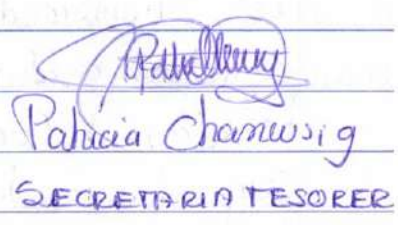 Patricia Chanusig
SECRETARIA TESORER